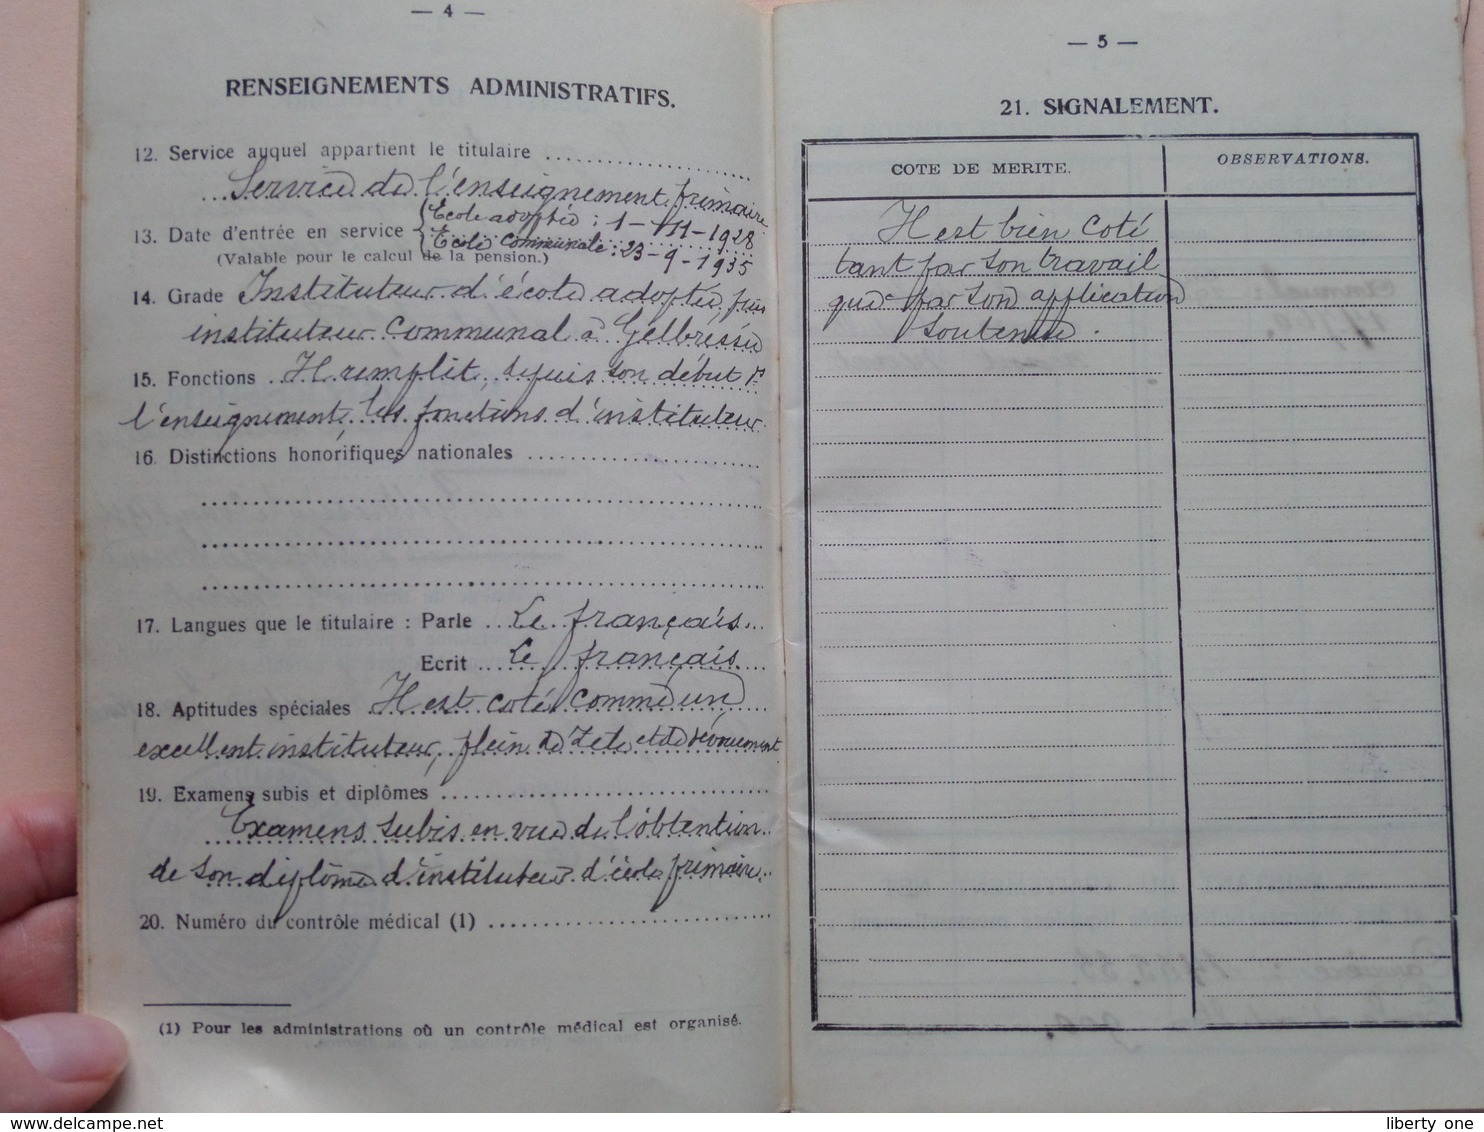 — 4 —
RENSEIGNEMENTS ADMINISTRATIFS.
12. Service auquel appartient le titulaire
Service de l'enseignement primaire
13. Date d'entrée en service { École adoptée : 1-XII-1928
{ École communale : 23-9-1935
(Valable pour le calcul de la pension.)
14. Grade Instituteur d'école adoptée, puis
instituteur communal à Gelbressée
15. Fonctions Il remplit, depuis son début ds
l'enseignement, les fonctions d'instituteur.
16. Distinctions honorifiques nationales
17. Langues que le titulaire : Parle Le français
Ecrit Le français
18. Aptitudes spéciales Il est coté comme un
excellent instituteur, plein de zèle et de dévouement
19. Examens subis et diplômes
Examens subis en vue de l'obtention
de son diplôme d'instituteur d'école primaire.
20. Numéro du contrôle médical (1)
(1) Pour les administrations où un contrôle médical est organisé.
— 5 —
21. SIGNALEMENT.
COTE DE MERITE. OBSERVATIONS.
Il est bien coté
tant par son travail
que par son application
soutenue.
liberty one